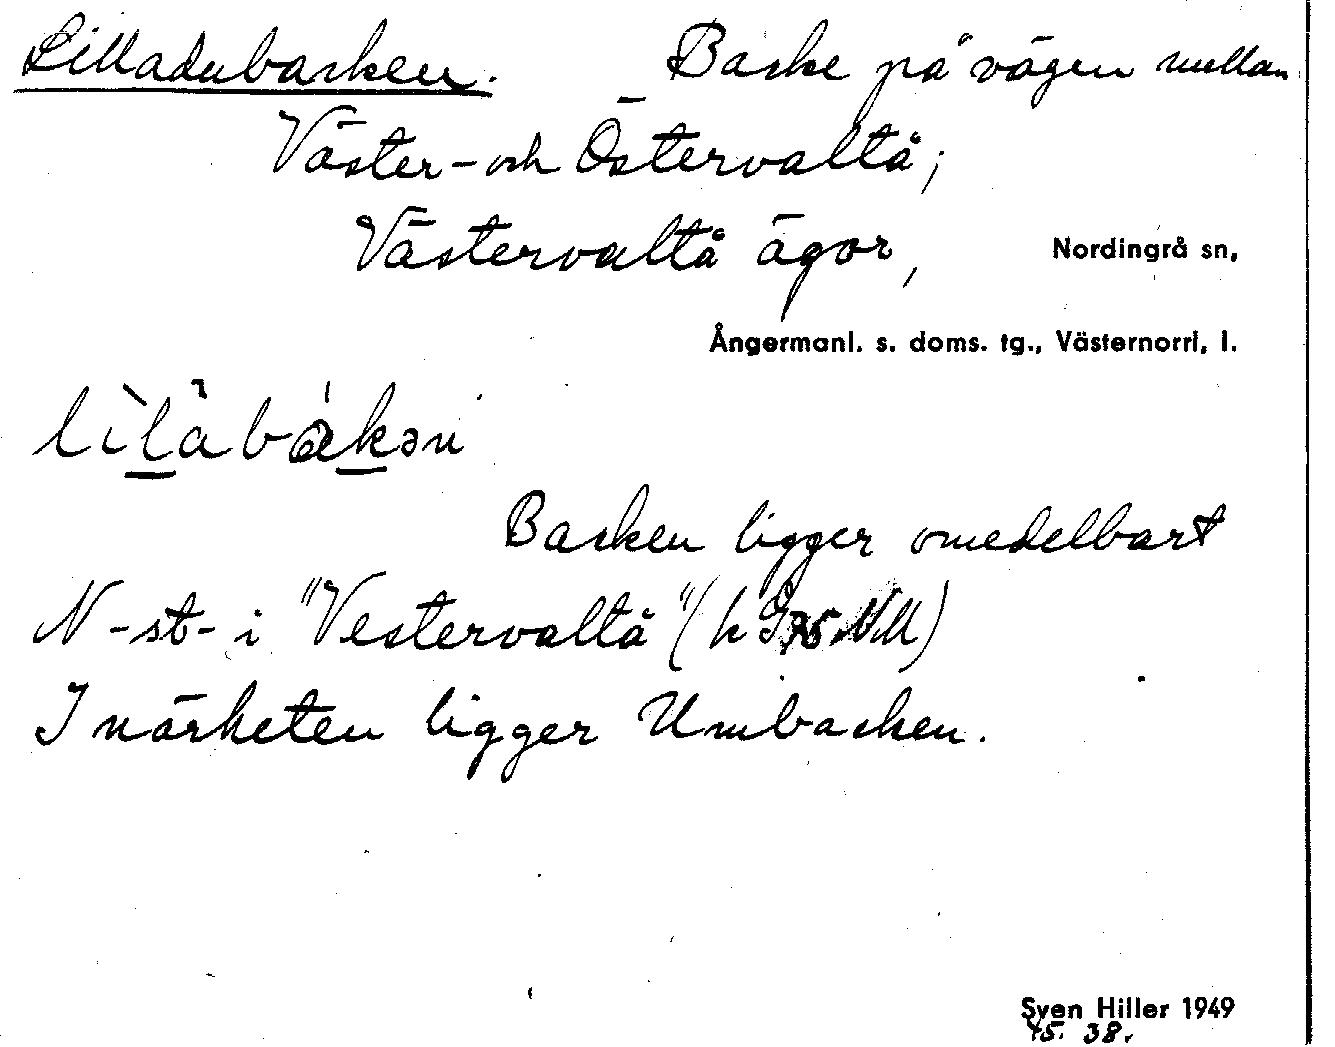 Lilladubacken. Backe på vägen mellan
Väster- och Östervaltå;
Västervaltå ägor, Nordingrå sn,
Ångermanl. s. doms. tg., Västernorrl. l.
Backen ligger omedelbart
N -st- i "Vestervaltå" (k G 35 NM)
I närheten ligger Umbacken.
Sven Hiller 1949
45. 38.